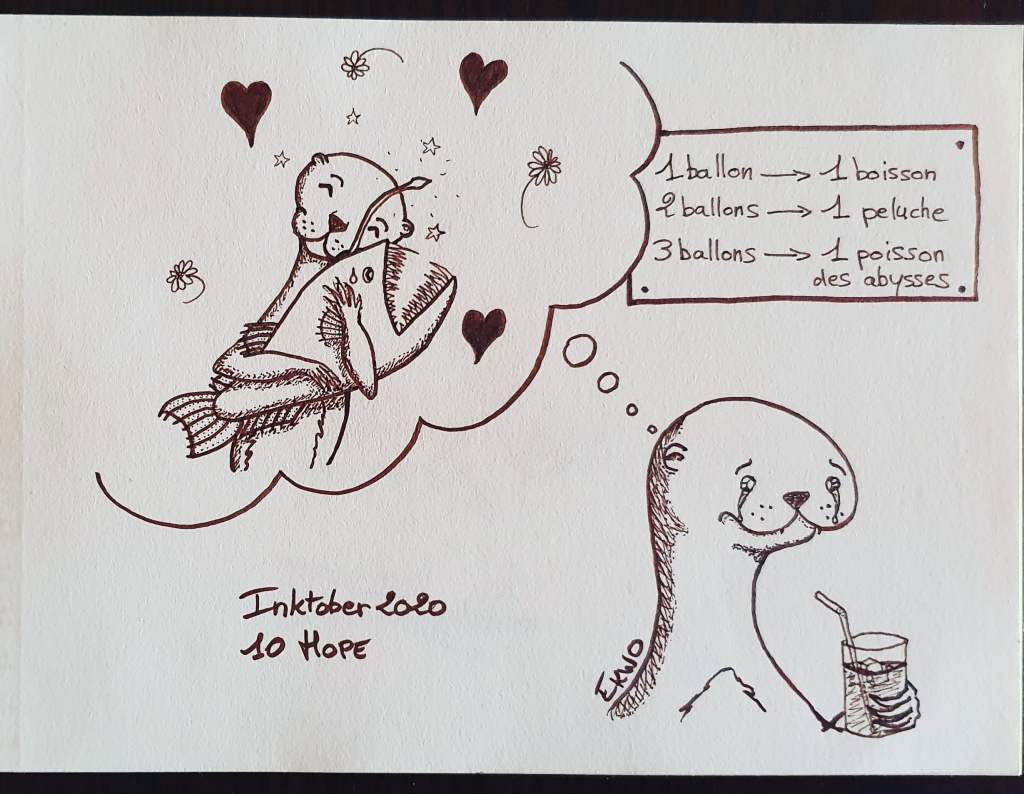 1 ballon → 1 boisson
2 ballons → 1 peluche
3 ballons → 1 poisson
des abysses
Inktober 2020
10 HOPE
EKWO